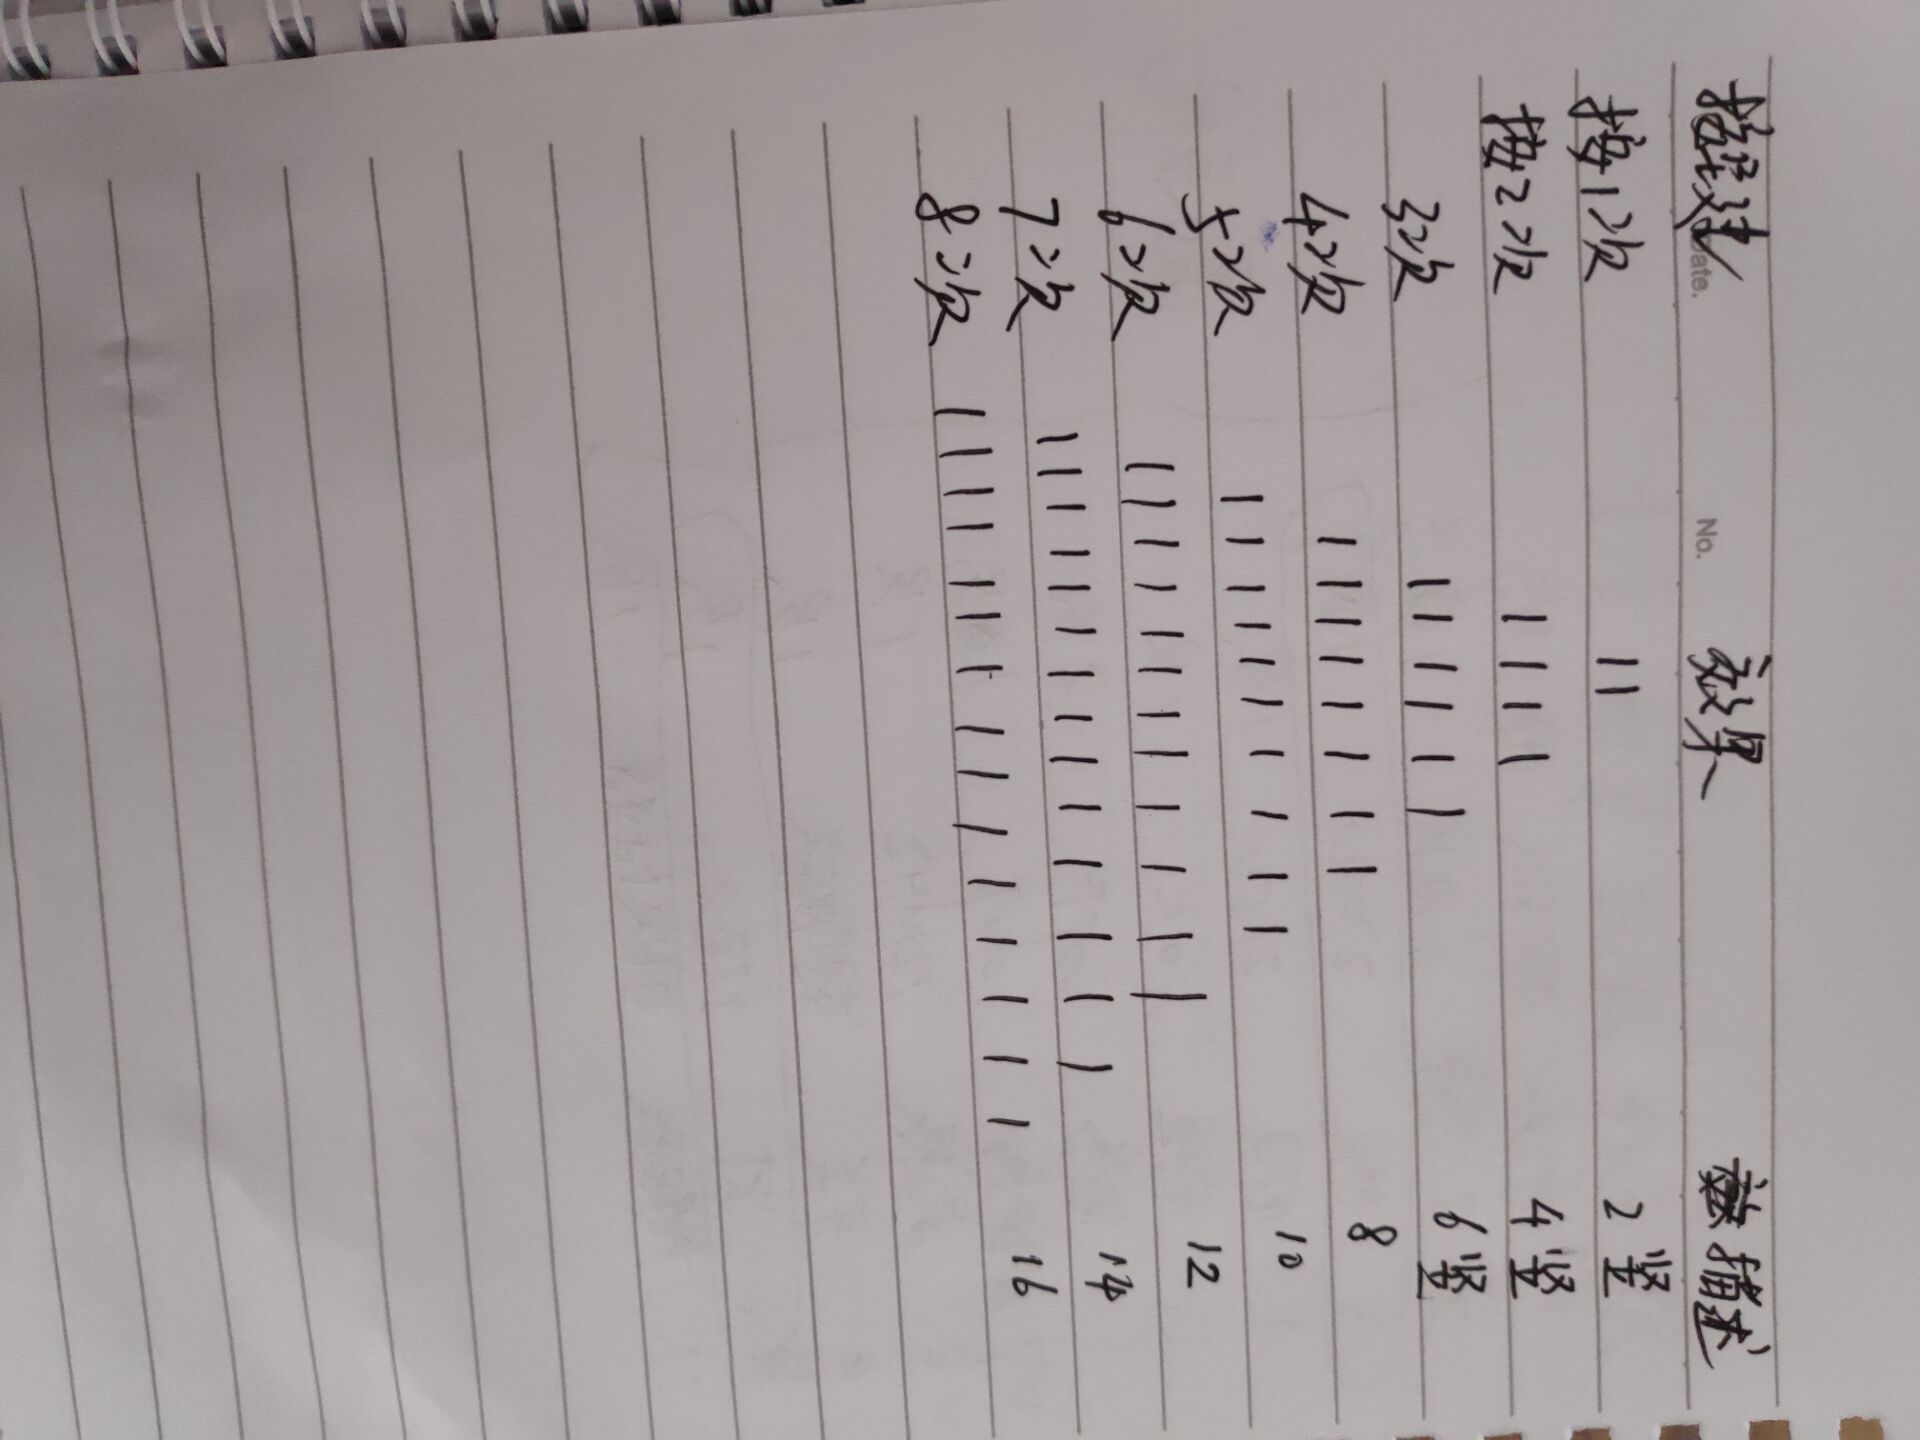 No. 效果 描述
按1次 | | 2竖
按2次 | | | | 4竖
3次 | | | | | | 6竖
4次 | | | | | | | | 8
5次 | | | | | | | | | | 10
6次 | | | | | | | | | | | | 12
7次 | | | | | | | | | | | | | | 14
8次 | | | | | | | | | | | | | | | 16